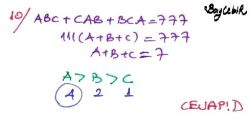 BayCebir
10/ ABC+CAB+BCA=777
111(A+B+C)=777
A+B+C=7
A>B>C
4 2 1
CEVAP: D